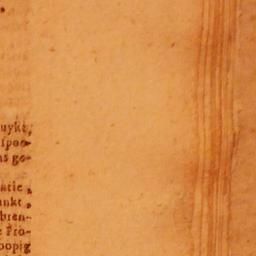 uykt,
ſpoe-
ns ge-
atie,
unkt,
bren-
e Pro-
oopig